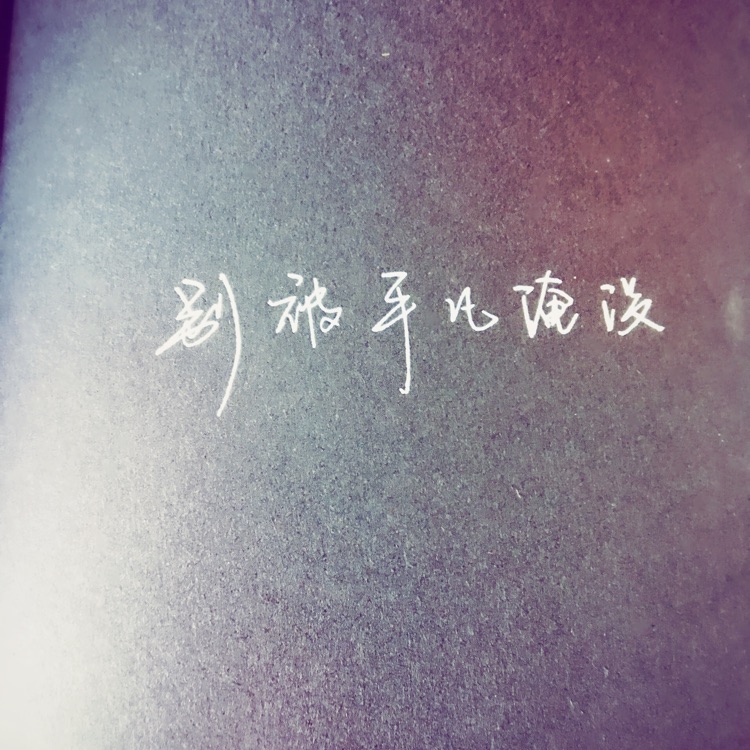 别被平凡淹没